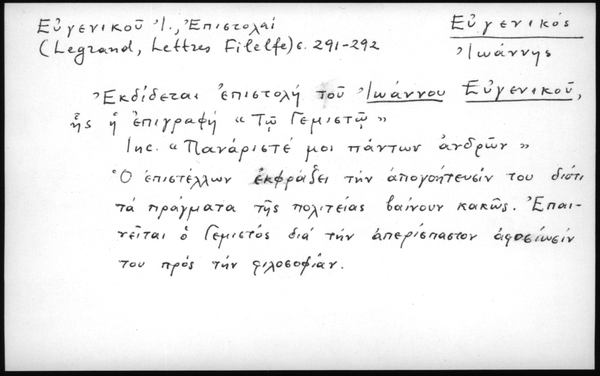 Εὐγενικοῦ Ἰ., Ἐπιστολαί
(Legrand, Lettres Filelfe) σ. 291-292
Εὐγενικός
Ἰωάννης
Ἐκδίδεται ἐπιστολή τοῦ Ἰωάννου Εὐγενικοῦ,
ἧς ἡ ἐπιγραφή «Τῷ Γεμιστῷ»
Inc. «Πανάριστέ μοι πάντων ἀνδρῶν»
Ὁ ἐπιστέλλων ἐκφράζει τήν ἀπογοήτευσίν του διότι
τά πράγματα τῆς πολιτείας βαίνουν κακῶς. Ἐπαι-
νεῖται ὁ Γεμιστός διά τήν ἀπερίσπαστον ἀφοσίωσίν
του πρός τήν φιλοσοφίαν.